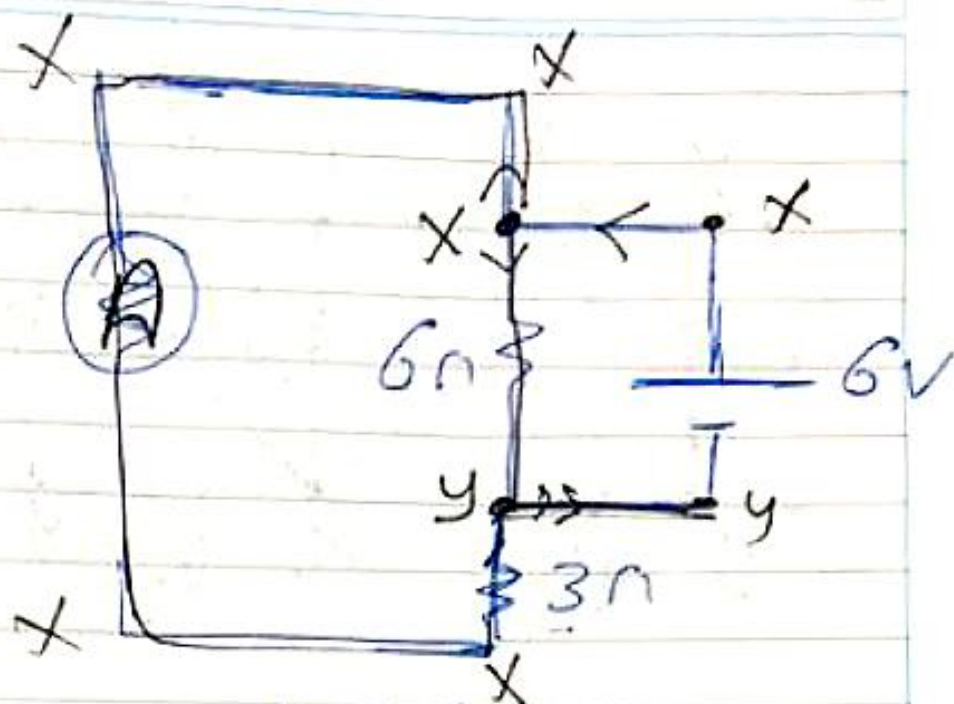 X X
X X
6Ω 6V
y y
3Ω
X
X